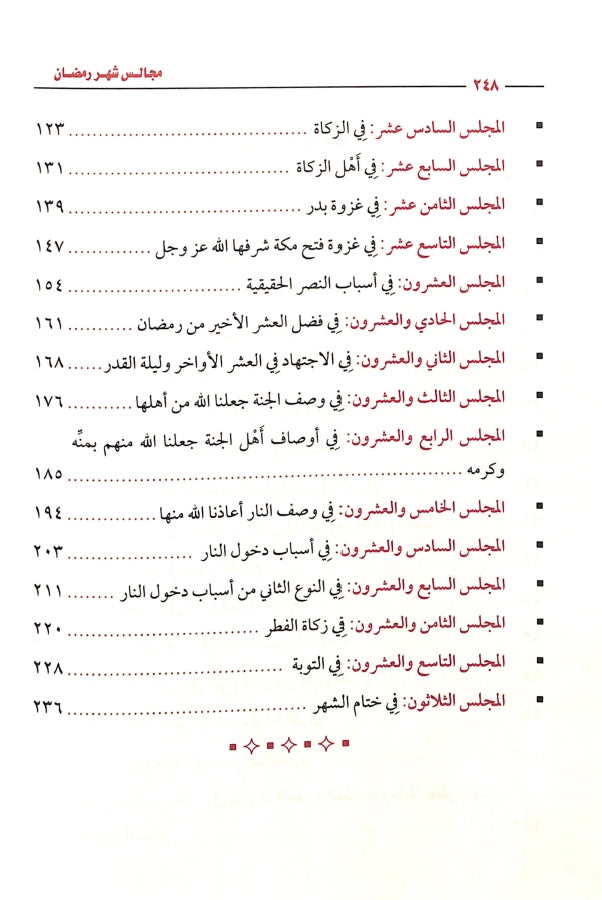 مجالس شهر رمضان
٢٤٨
المجلس السادس عشر: فِي الزكاة ١٢٣
المجلس السابع عشر: فِي أَهْل الزكاة ١٣١
المجلس الثامن عشر: فِي غزوة بدر ١٣٩
المجلس التاسع عشر: فِي غزوة فتح مكة شرفها الله عز وجل ١٤٧
المجلس العشرون: فِي أسباب النصر الحقيقية ١٥٤
المجلس الحادي والعشرون: فِي فضل العشر الأخير من رمضان ١٦١
المجلس الثاني والعشرون: فِي الاجتهاد فِي العشر الأواخر وليلة القدر ١٦٨
المجلس الثالث والعشرون: فِي وصف الجنة جعلنا الله من أهلها ١٧٦
المجلس الرابع والعشرون: فِي أوصاف أَهْل الجنة جعلنا الله منهم بمنِّه
وكرمه ١٨٥
المجلس الخامس والعشرون: فِي وصف النار أعاذنا الله منها ١٩٤
المجلس السادس والعشرون: فِي أسباب دخول النار ٢٠٣
المجلس السابع والعشرون: فِي النوع الثاني من أسباب دخول النار ٢١١
المجلس الثامن والعشرون: فِي زكاة الفطر ٢٢٠
المجلس التاسع والعشرون: فِي التوبة ٢٢٨
المجلس الثلاثون: فِي ختام الشهر ٢٣٦